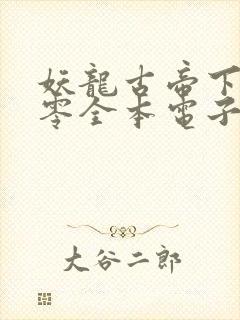 妖龍古帝下
零全本電子
大谷二郎